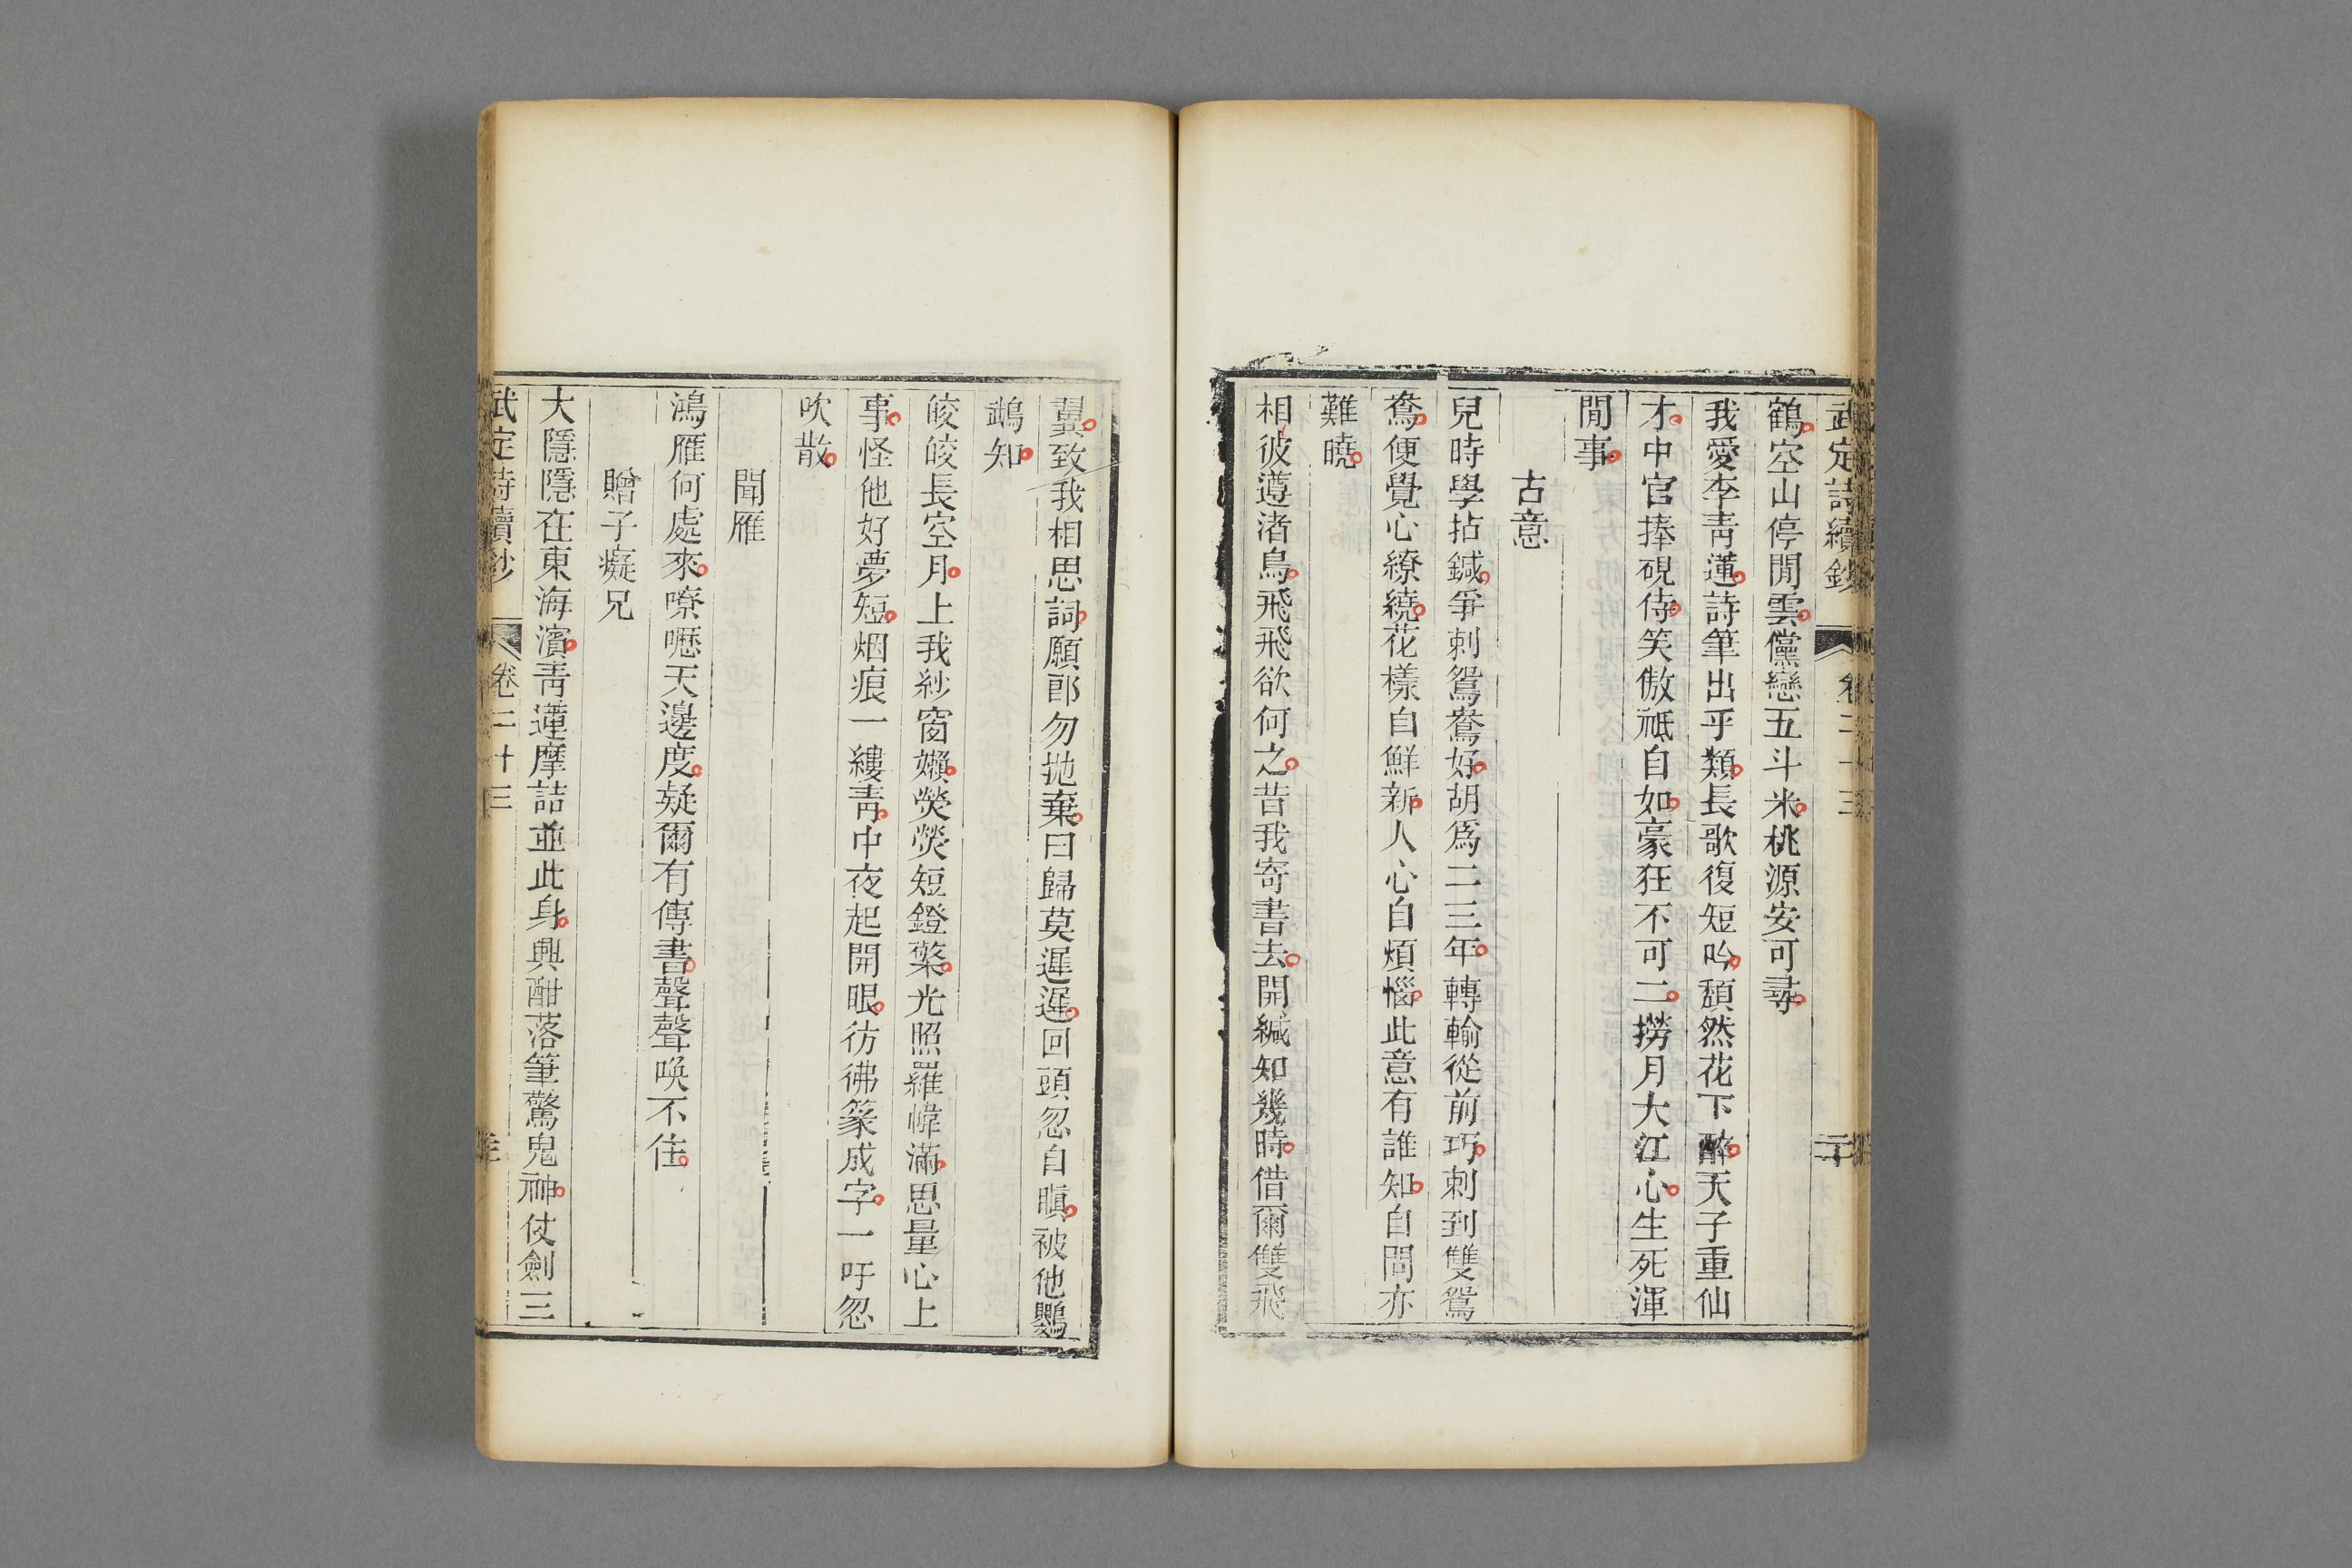 武定詩續鈔 卷二十三 二十
鶴空山停閒雲儻戀五斗米桃源安可尋
我愛李青蓮詩筆出乎類長歌復短吟頹然花下醉天子重仙
才中官捧硯侍笑傲祗自如豪狂不可二撈月大江心生死渾
閒事
古意
兒時學拈鍼爭刺鴛鴦好胡為二三年轉輸從前巧刺到雙鴛
鴦便覺心繚繞花樣自鮮新人心自煩惱此意有誰知自問亦
難曉
相彼遵渚鳥飛飛欲何之昔我寄書去開緘知幾時借爾雙飛
翼致我相思詞願郎勿拋棄曰歸莫遲遲回頭忽自瞋被他鸚
鵡知
皎皎長空月上我紗窗嬾熒熒短鐙檠光照羅幃滿思量心上
事怪他好夢短烟痕一縷青中夜起開眼彷彿篆成字一吁忽
吹散
聞雁
鴻雁何處來嘹嚦天邊度疑爾有傳書聲聲喚不住
贈子癡兄
大隱隱在東海濱青蓮摩詰並此身興酣落筆驚鬼神仗劍三
武定詩續鈔 卷二十三